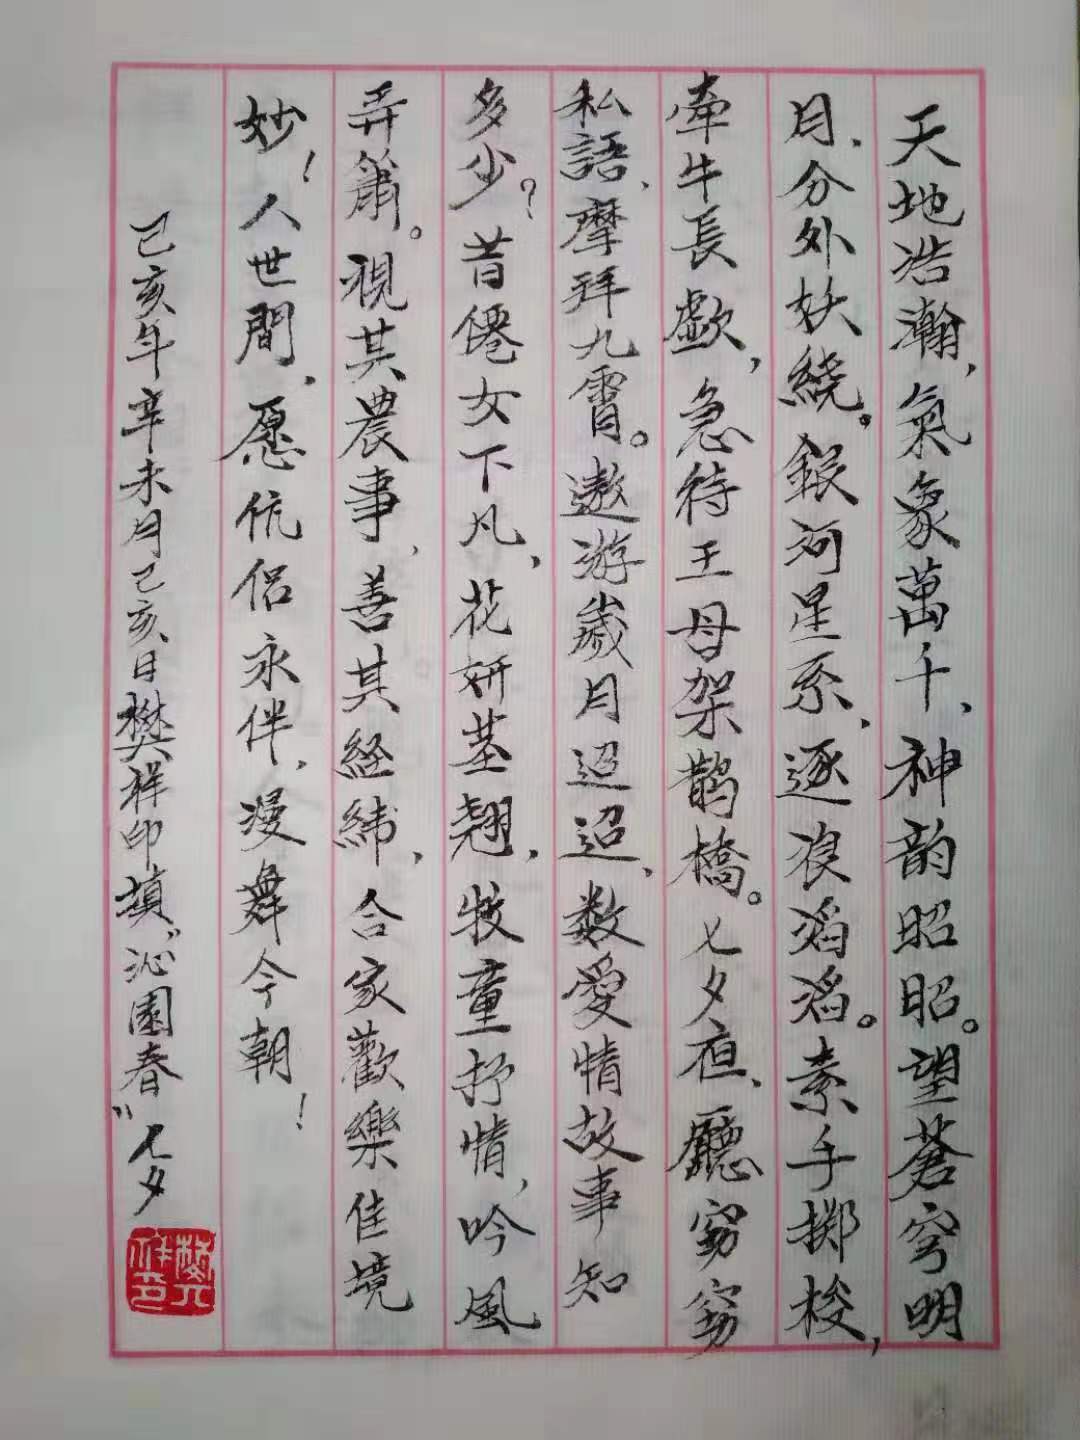 天地浩瀚，氣象萬千，神韵昭昭。望蒼穹明
月，分外妖繞。銀河星系，逐浪滔滔。素手擲梭，
牽牛長歔，急待王母架鹊橋。七夕夜，廳窈窈
私語，摩拜九霄。遨游歲月迢迢，数愛情故事知
多少？昔僊女下凡，花妍茎翘，牧童抒情，吟風
弄簫。視其農事，善其経緯，合家歡樂佳境
妙！人世間，愿伉侶永伴，漫舞今朝！
己亥年辛未月己亥日樊祥印填“沁園春”七夕
樊祥印